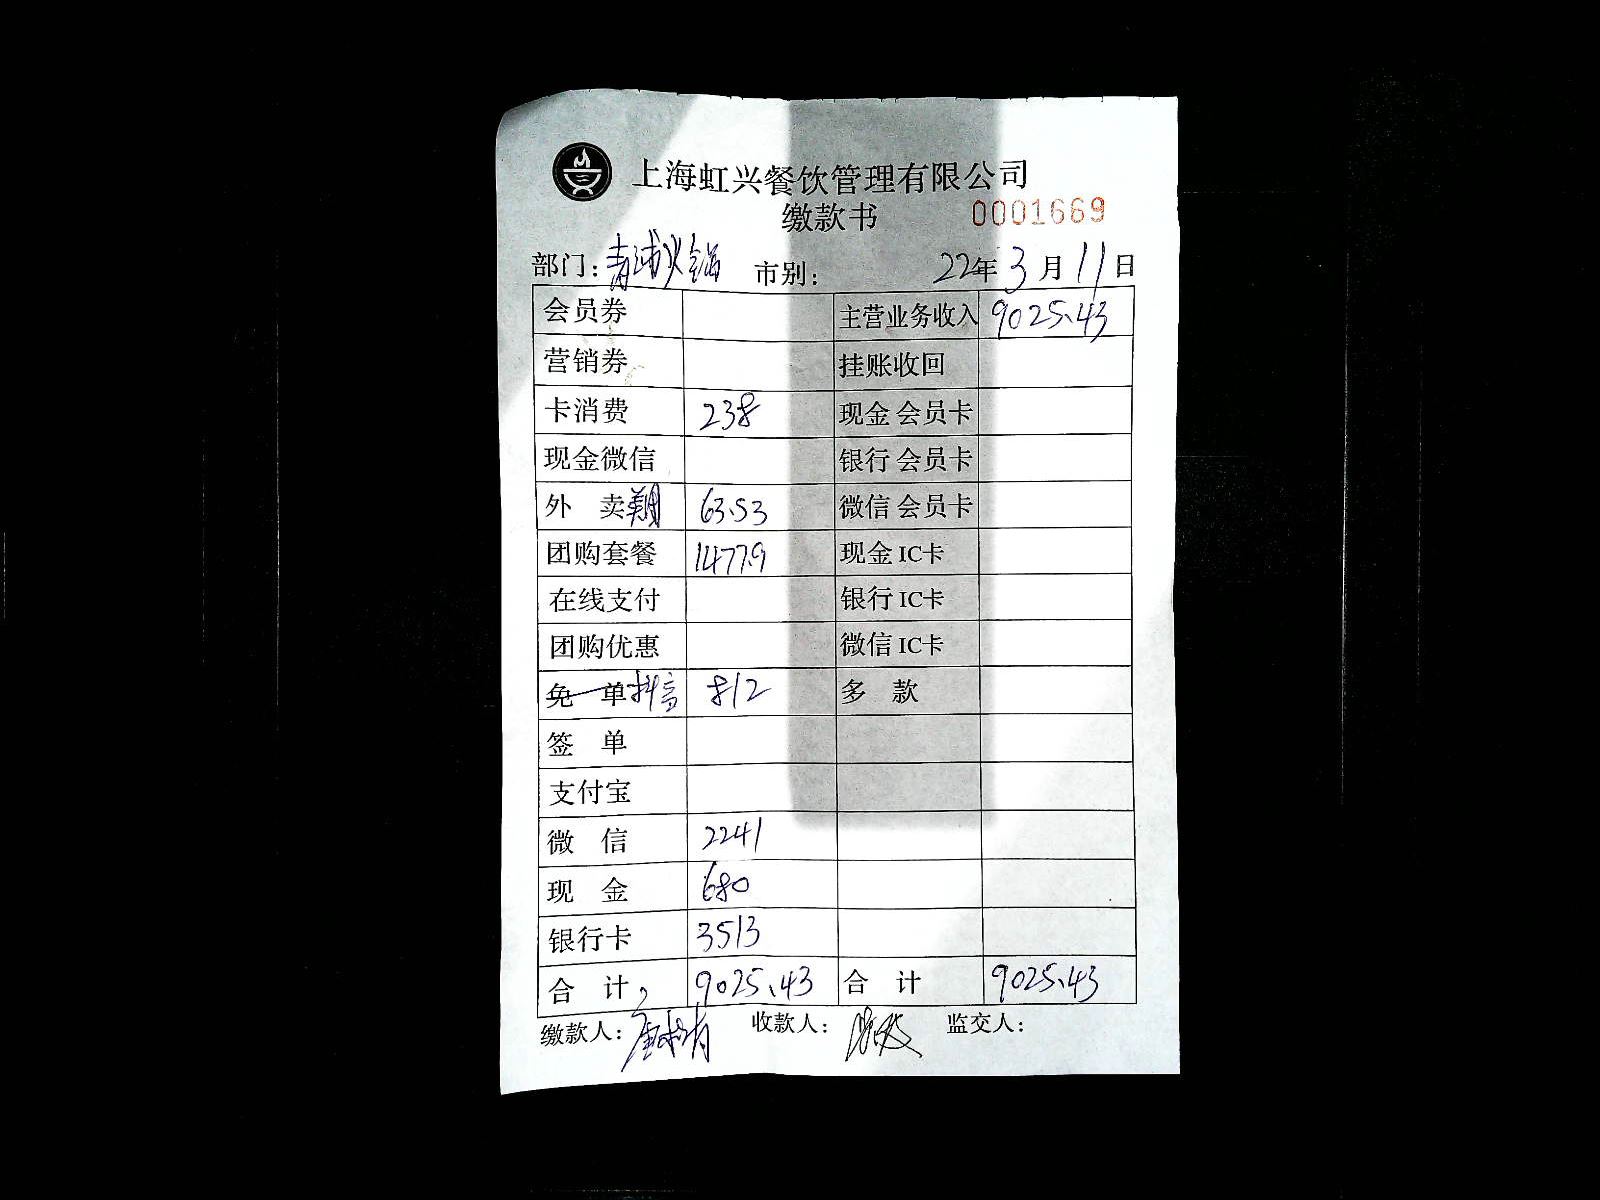 上海虹兴餐饮管理有限公司
缴款书 0001669
部门: 青浦火锅 市别: 22年3月11日
会员券 主营业务收入 9025.43
营销券 挂账收回
卡消费 238 现金 会员卡
现金微信 银行 会员卡
外 卖 63.53 微信 会员卡
团购套餐 1477.9 现金 IC卡
在线支付 银行 IC卡
团购优惠 微信 IC卡
免 单 抖音 812 多 款
签 单
支付宝
微 信 2241
现 金 680
银行卡 3513
合 计 9025.43 合 计 9025.43
缴款人: 收款人: 监交人: